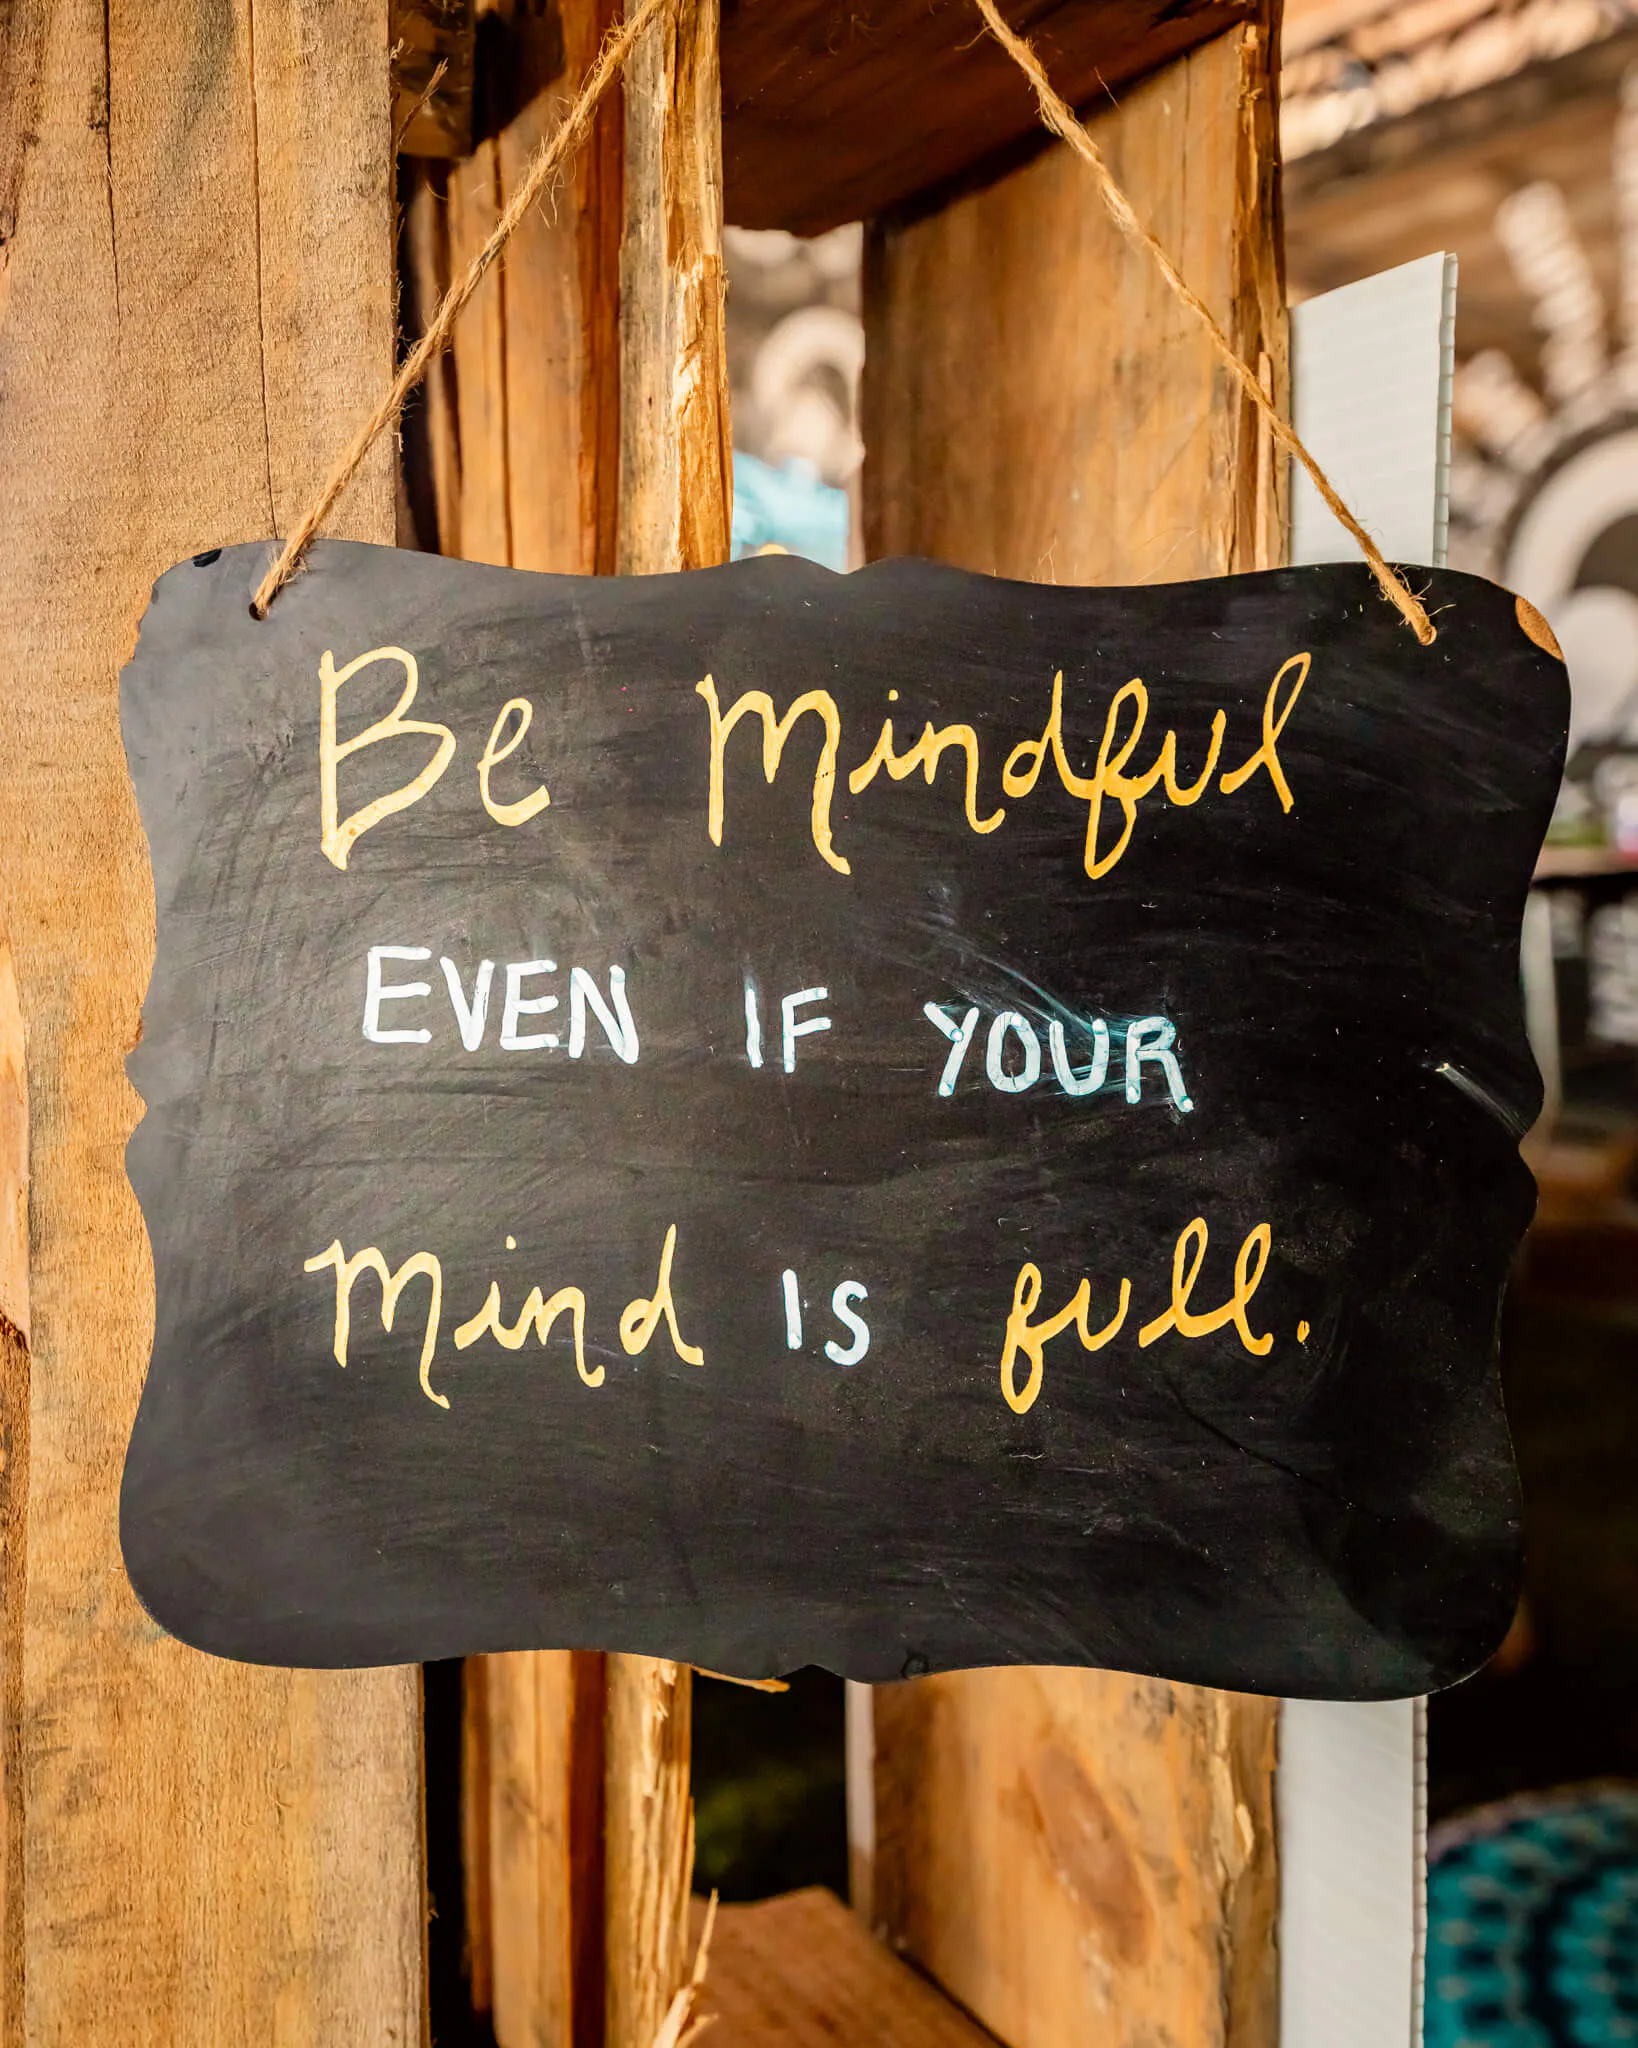 Be Mindful
EVEN IF YOUR
Mind IS full.